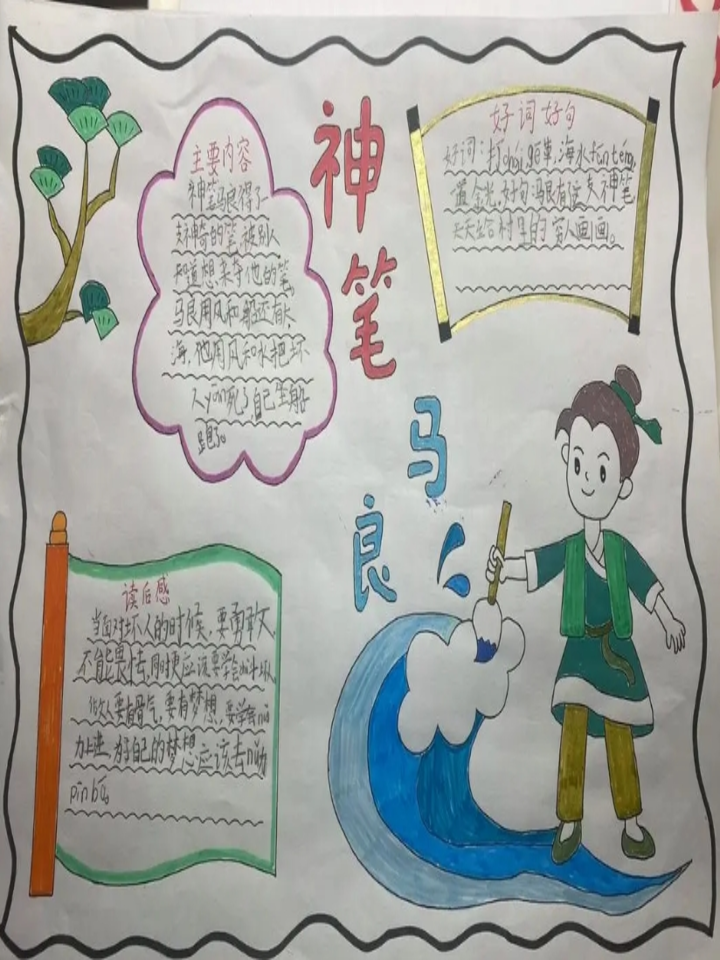 神笔
马
良
主要内容
神笔马良得了
支神奇的笔,被别人
知道想来夺他的笔,
马良用风和
海,他用风和水把坏
人yān死了,自己坐船
跑了。
好词好句
好词:打chái,陌草,海水fān téng,
道金光,好句:马良有这支神笔,
天天给村里的穷人画画。
读后感
当面对坏人的时候,要勇敢,
不能畏怯,同时更应该要学会
做人要有骨气,要有梦想,要学会nǔ
力上进,为好自己的梦想应该去nǔ力
pīn bó。